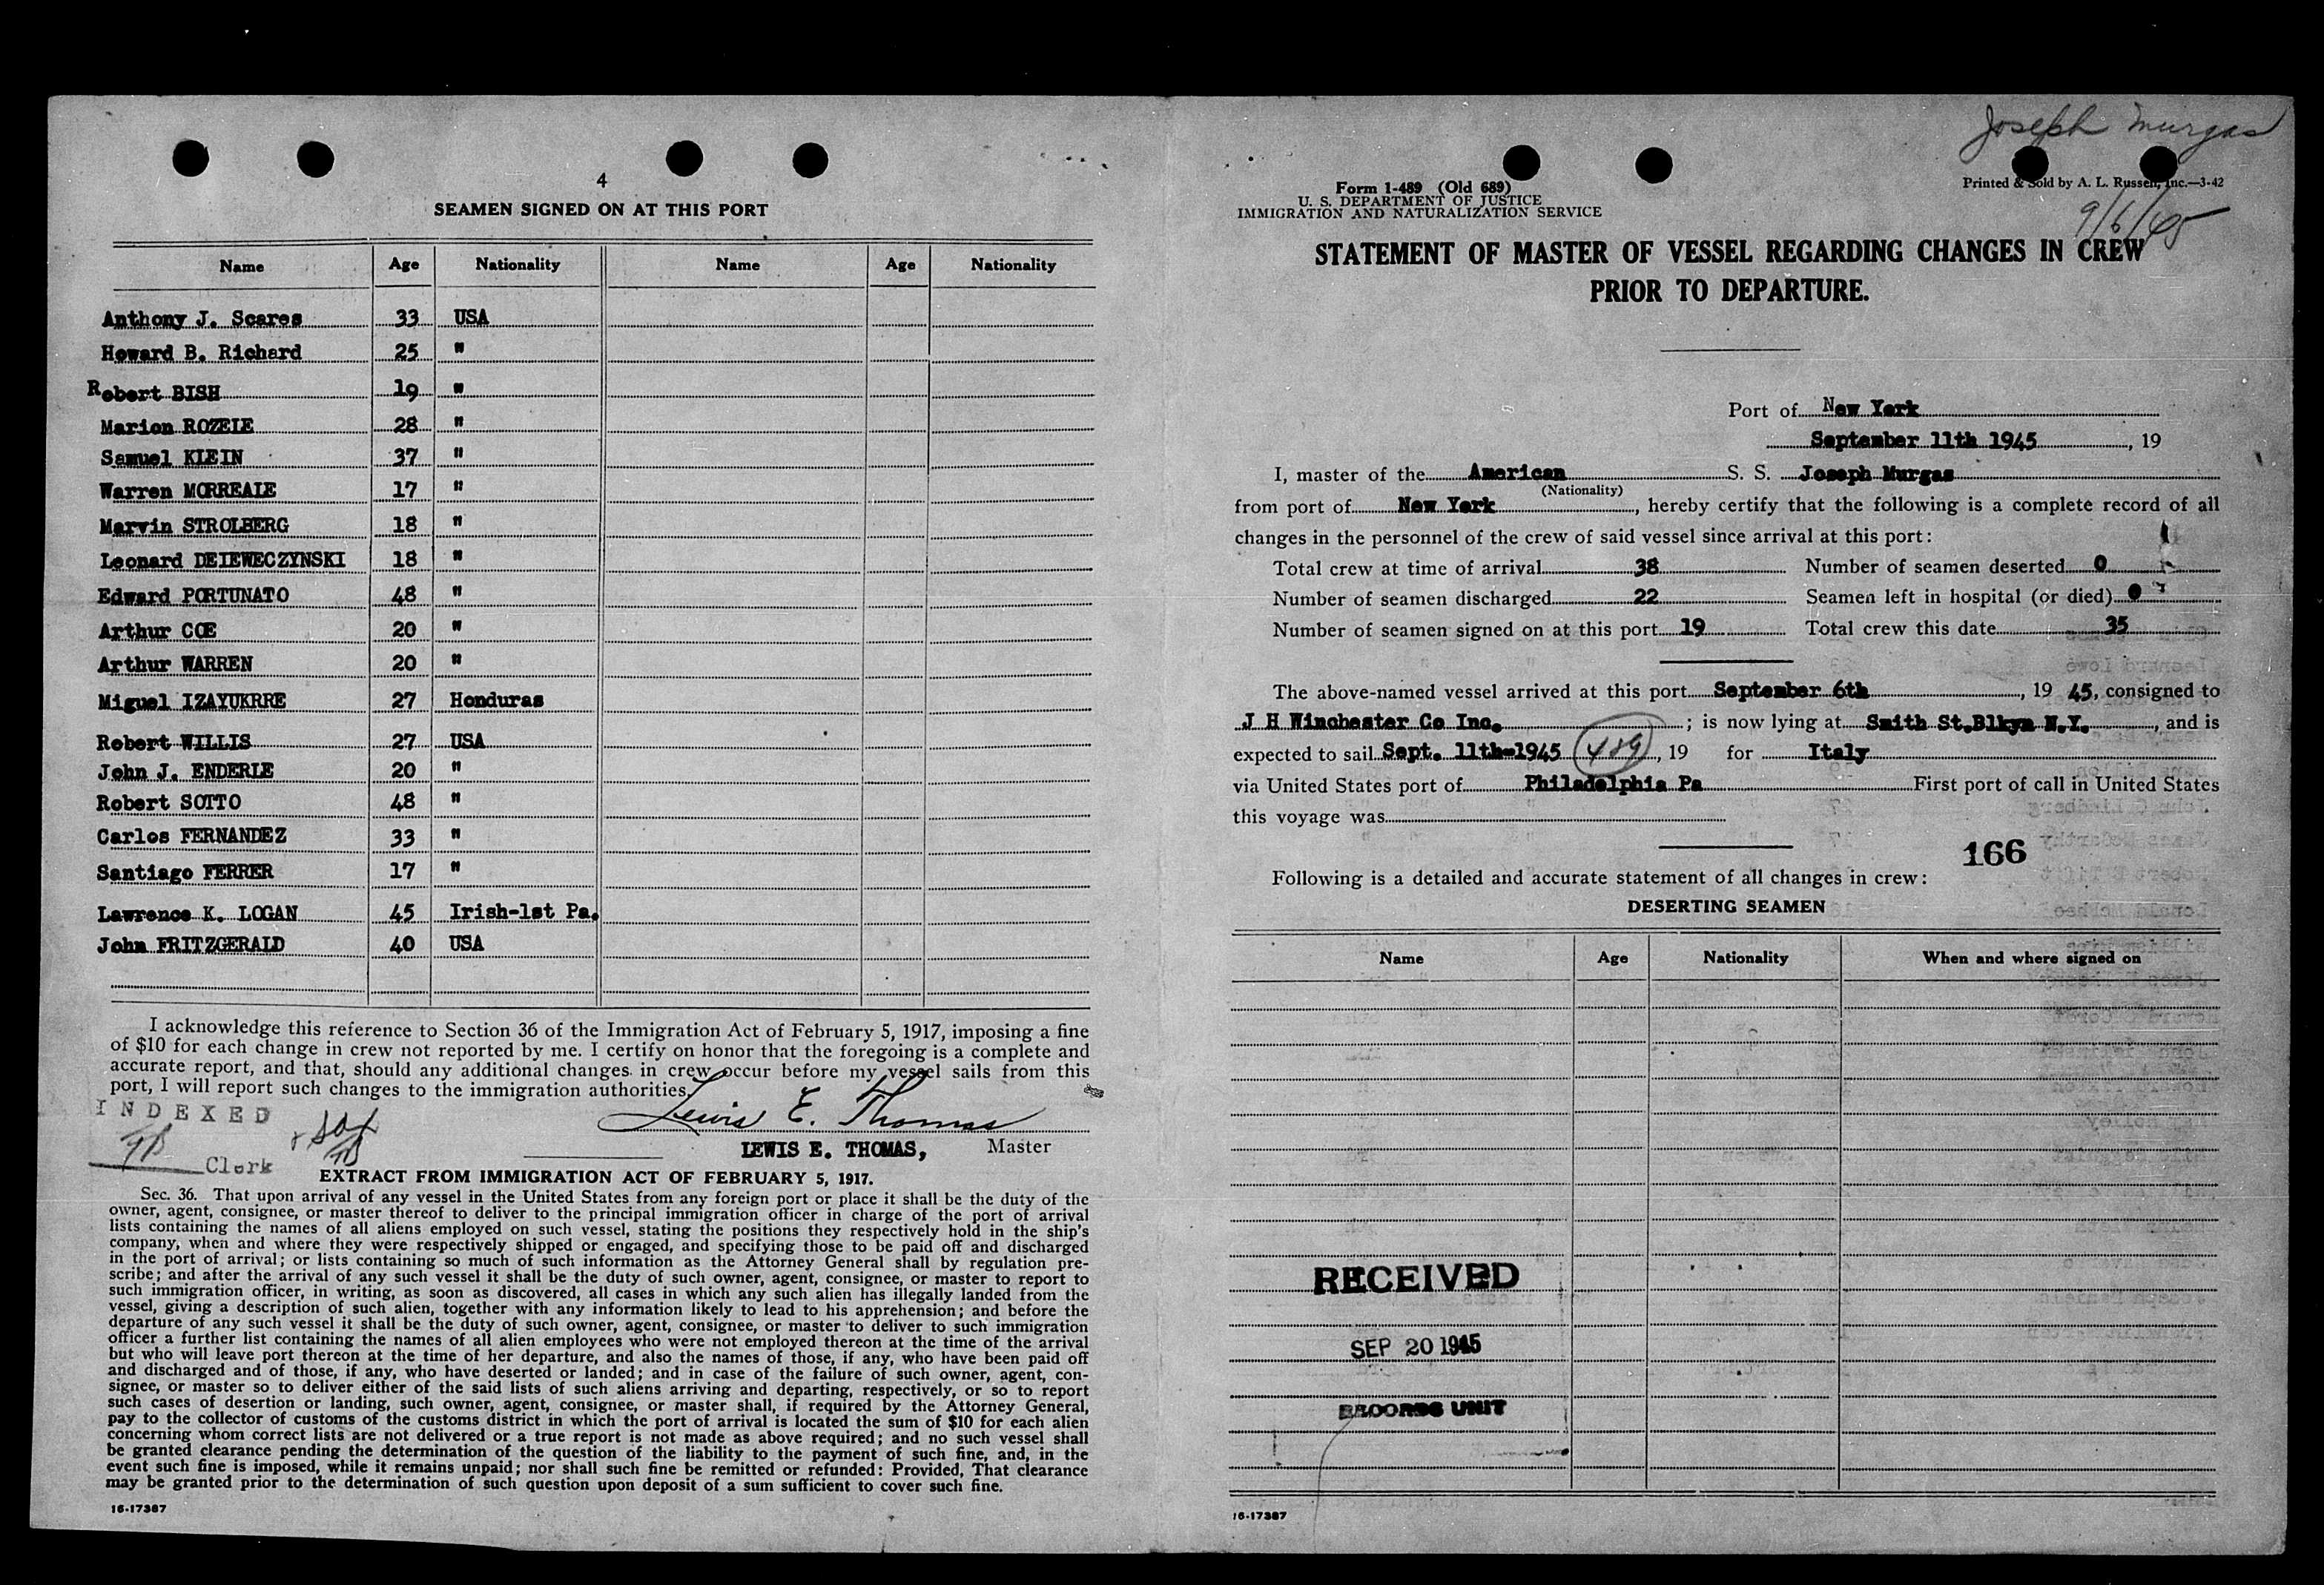 4
SEAMEN SIGNED ON AT THIS PORT
Name Age Nationality Name Age Nationality
Anthony J. Scares 33 USA
Howard B. Richard 25 "
Robert BISH 19 "
Marion ROZELE 28 "
Samuel KLEIN 37 "
Warren MORREALE 17 "
Marvin STROLBERG 18 "
Leonard DEIEWECZYNSKI 18 "
Edward PORTUNATO 48 "
Arthur COE 20 "
Arthur WARREN 20 "
Miguel IZAYUKRRE 27 Honduras
Robert WILLIS 27 USA
John J. ENDERLE 20 "
Robert SOTTO 48 "
Carlos FERNANDEZ 33 "
Santiago FERRER 17 "
Lawrence K. LOGAN 45 Irish-1st Pa.
John FRITZGERALD 40 USA
I acknowledge this reference to Section 36 of the Immigration Act of February 5, 1917, imposing a fine
of $10 for each change in crew not reported by me. I certify on honor that the foregoing is a complete and
accurate report, and that, should any additional changes in crew occur before my vessel sails from this
port, I will report such changes to the immigration authorities.
INDEXED
Lewis E. Thomas
LEWIS E. THOMAS, Master
Clerk
EXTRACT FROM IMMIGRATION ACT OF FEBRUARY 5, 1917.
Sec. 36. That upon arrival of any vessel in the United States from any foreign port or place it shall be the duty of the
owner, agent, consignee, or master thereof to deliver to the principal immigration officer in charge of the port of arrival
lists containing the names of all aliens employed on such vessel, stating the positions they respectively hold in the ship's
company, when and where they were respectively shipped or engaged, and specifying those to be paid off and discharged
in the port of arrival; or lists containing so much of such information as the Attorney General shall by regulation pre-
scribe; and after the arrival of any such vessel it shall be the duty of such owner, agent, consignee, or master to report to
such immigration officer, in writing, as soon as discovered, all cases in which any such alien has illegally landed from the
vessel, giving a description of such alien, together with any information likely to lead to his apprehension; and before the
departure of any such vessel it shall be the duty of such owner, agent, consignee, or master to deliver to such immigration
officer a further list containing the names of all alien employees who were not employed thereon at the time of the arrival
but who will leave port thereon at the time of her departure, and also the names of those, if any, who have been paid off
and discharged and of those, if any, who have deserted or landed; and in case of the failure of such owner, agent, con-
signee, or master so to deliver either of the said lists of such aliens arriving and departing, respectively, or so to report
such cases of desertion or landing, such owner, agent, consignee, or master shall, if required by the Attorney General,
pay to the collector of customs of the customs district in which the port of arrival is located the sum of $10 for each alien
concerning whom correct lists are not delivered or a true report is not made as above required; and no such vessel shall
be granted clearance pending the determination of the question of the liability to the payment of such fine, and, in the
event such fine is imposed, while it remains unpaid; nor shall such fine be remitted or refunded: Provided, That clearance
may be granted prior to the determination of such question upon deposit of a sum sufficient to cover such fine.
16-17387
Joseph Murgas
Form 1-489 (Old 689)
U. S. DEPARTMENT OF JUSTICE
IMMIGRATION AND NATURALIZATION SERVICE
Printed & Sold by A. L. Russell, Inc.—3-42
9/6/45
STATEMENT OF MASTER OF VESSEL REGARDING CHANGES IN CREW
PRIOR TO DEPARTURE.
Port of New York
September 11th 1945, 19
I, master of the American S. S. Joseph Murgas
(Nationality)
from port of New York, hereby certify that the following is a complete record of all
changes in the personnel of the crew of said vessel since arrival at this port:
Total crew at time of arrival 38 Number of seamen deserted 0
Number of seamen discharged 22 Seamen left in hospital (or died) 0
Number of seamen signed on at this port 19 Total crew this date 35
The above-named vessel arrived at this port September 6th, 19 45, consigned to
J H Winchester Co Inc.; is now lying at Smith St.Blkyn N.Y., and is
expected to sail Sept. 11th-1945 489, 19 for Italy
via United States port of Philadelphia Pa First port of call in United States
this voyage was
166
Following is a detailed and accurate statement of all changes in crew:
DESERTING SEAMEN
Name Age Nationality When and where signed on
RECEIVED
SEP 20 1945
RECORDS UNIT
16-17387